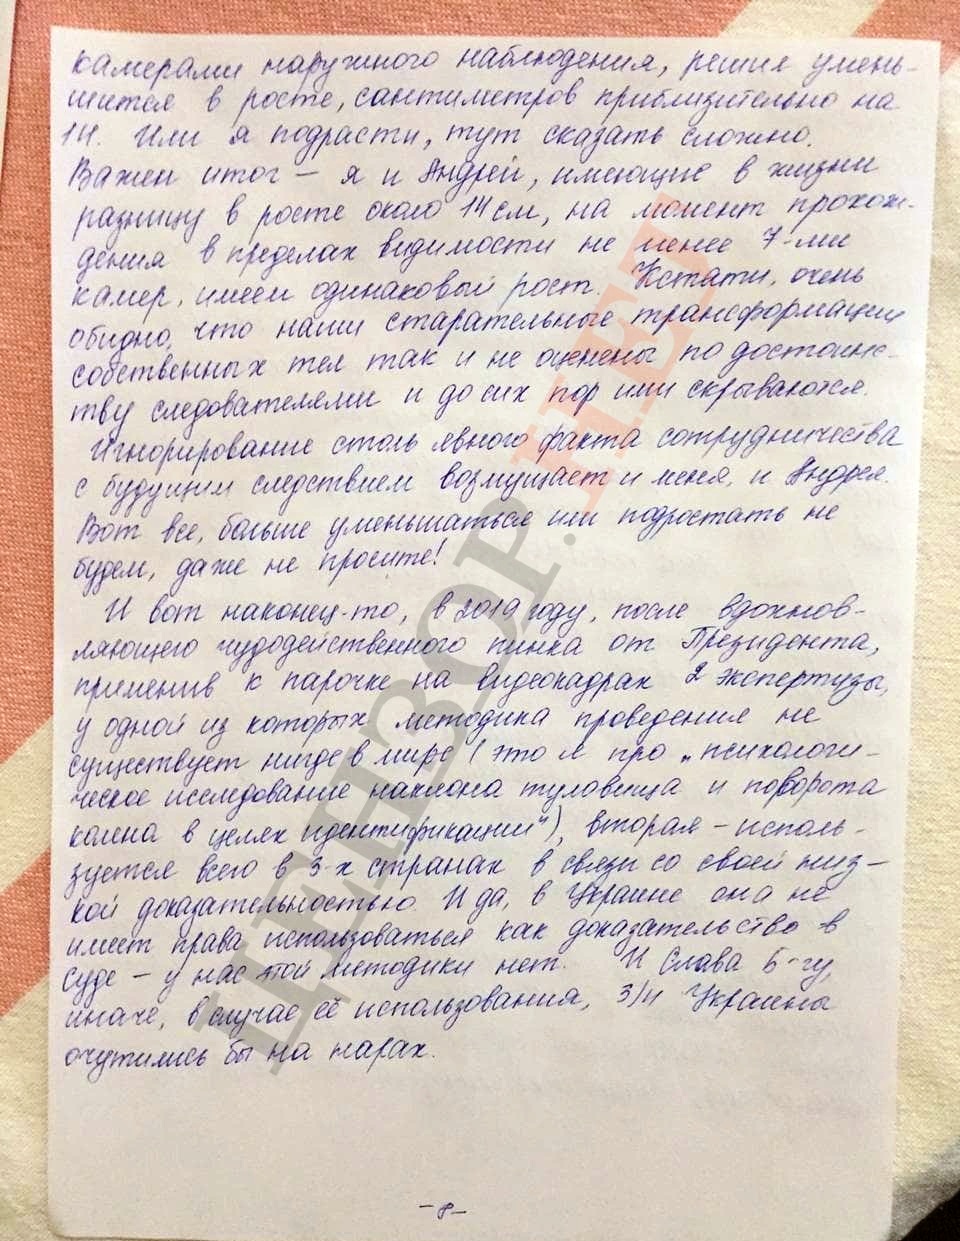 камерами наружного наблюдения, решил умень-
шится в росте, сантиметров приблизительно на
14. Или я подрасти, тут сказать сложно.
Важен итог – я и Андрей, имеющие в жизни
разницу в росте около 14 см, на момент прохож-
дения в пределах видимости не менее 7-ми
камер, имеем одинаковый рост. Кстати, очень
обидно, что наши старательные трансформации
собственных тел так и не оценены по достоинс-
тву следователями и до сих пор ими скрываются.
Игнорирование столь явного факта сотрудничества
с будущим следствием возмущает и меня, и Андрея.
Вот все, больше уменьшаться или подростать не
будем, даже не просите!
И вот наконец-то, в 2019 году, после вдохнов-
ляющего чудодейственного пинка от Президента,
применив к парочке на видеокадрах 2 экспертизы,
у одной из которых методика проведения не
существует нигде в мире (это я про „психологи-
ческое исследование наклона туловища и поворота
колена в целях идентификации"), вторая – исполь-
зуется всего в 3-х странах в связи со своей низ-
кой доказательностью. И да, в Украине она не
имеет права использоваться как доказательство в
суде – у нас той методики нет. И Слава Б-гу,
иначе, в случае её использования, 3/4 Украины
очутились бы на нарах.
-8-
ЦЕНЗОР.НЕТ